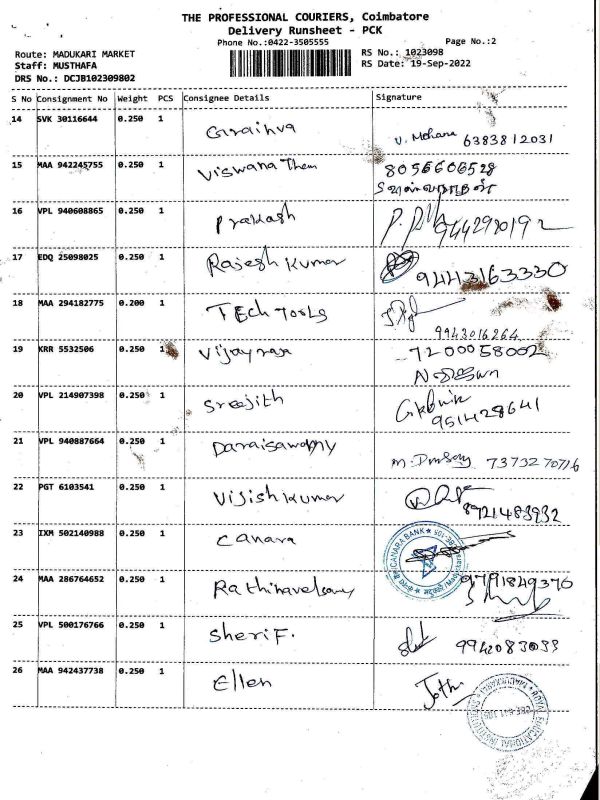 THE PROFESSIONAL COURIERS, Coimbatore
Delivery Runsheet - PCK
Phone No.:0422-3505555 Page No.:2
Route: MADUKARI MARKET RS No.: 1023098
Staff: MUSTHAFA RS Date: 19-Sep-2022
DRS No.: DCJB102309802
S No Consignment No Weight PCS Consignee Details Signature
14 SVK 30116644 0.250 1 U. Mohana 6383812031
15 MAA 942245755 0.250 1 Viswanathan 8056606528
16 VPL 940608865 0.250 1 Prakash
17 EDQ 25098025 0.250 1 Rajesh Kumar 9443163330
18 MAA 294182775 0.200 1 TECh Tools
9943016264
19 KRR 5532506 0.250 1 Vijayraja 7200058002
20 VPL 214907398 0.250 1 Sreejith
951428641
21 VPL 940887664 0.250 1 Daraisawamy
22 PGT 6103541 0.250 1 Vijish Kumar
8921483932
23 IXM 502140988 0.250 1 Canara CANARA BANK
24 MAA 286764652 0.250 1 9791849376
25 VPL 500176766 0.250 1 Sherif. 9942083033
26 MAA 942437738 0.250 1 Ellen Jothi